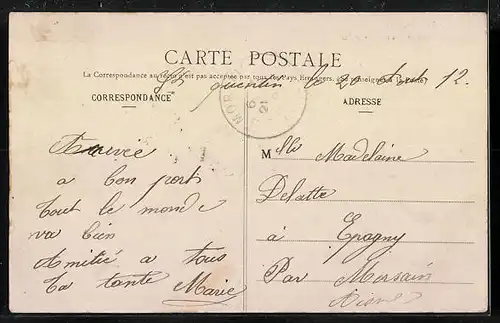 CARTE POSTALE
La Correspondance au recto n'est pas acceptée par tous les Pays Etrangers. (Se renseigner à la Poste)
St quentin le 20 12.
CORRESPONDANCE
ADRESSE
Arrivée
a bon port
tout le monde
va bien
Amitié a tous
ta tante Marie
Mlle Madelaine
Delattre
à Epagny
Par Morsain
Aisne